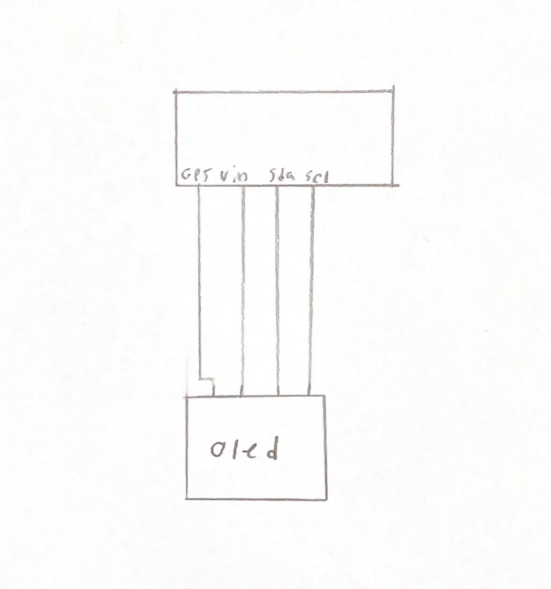 GPS Vin Sda scl
oled